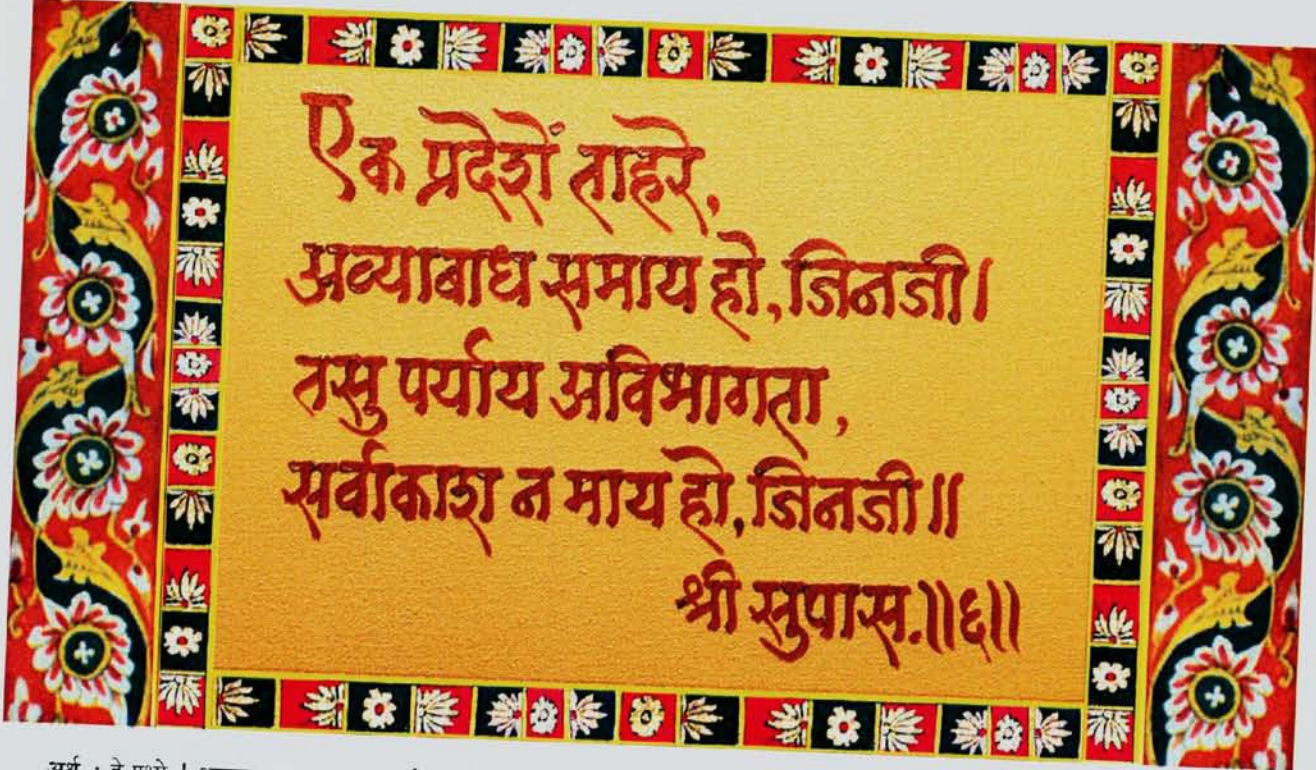 एक प्रदेशें ताहरे,
अव्याबाध समाय हो, जिनजी।
तसु पर्याय अविभागता,
सर्वाकाश न माय हो, जिनजी॥
श्री सुपास.॥६॥
अर्थ : हे प्रभो !